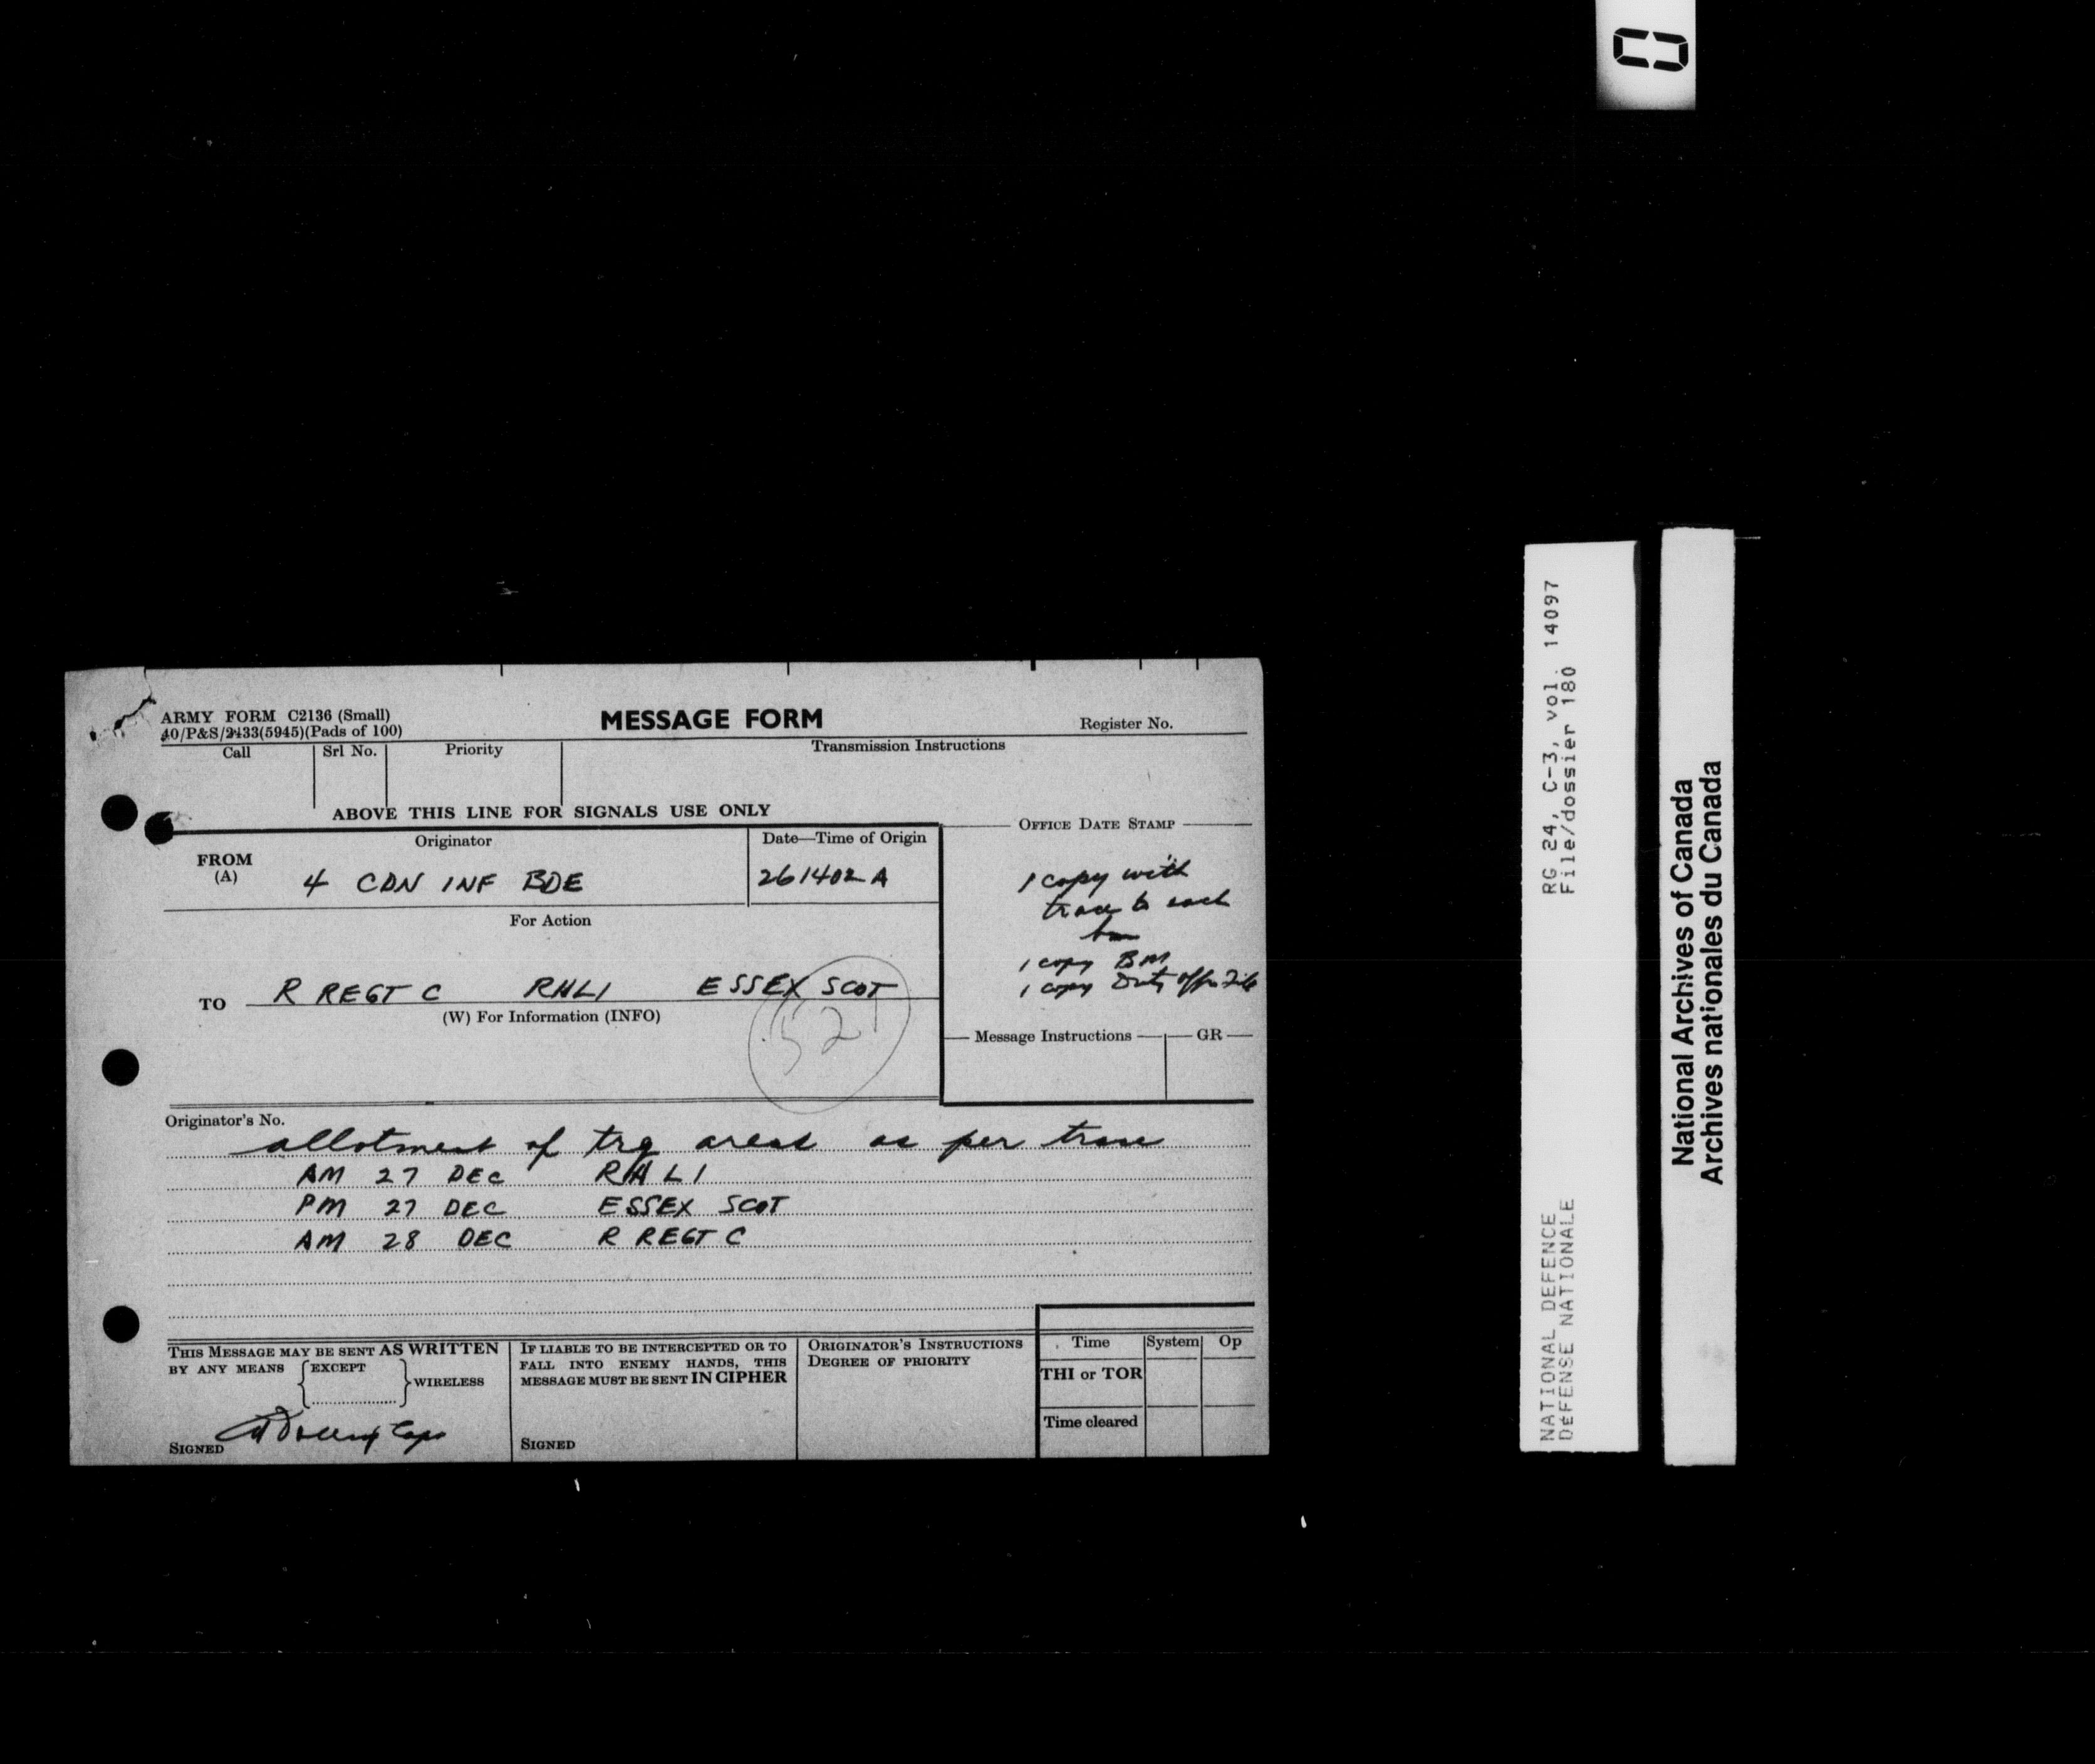 ARMY FORM C2136 (Small)
40/P&S/2433(5945)(Pads of 100)
MESSAGE FORM
Register No.
Call
Srl No.
Priority
Transmission Instructions
ABOVE THIS LINE FOR SIGNALS USE ONLY
FROM
(A)
Originator
4 CDN INF BDE
Date—Time of Origin
261402 A
OFFICE DATE STAMP
1 copy with
trace to each
bn
1 copy BM
1 copy Duty offr File
For Action
TO
R REGT C RHLI ESSEX SCOT
(W) For Information (INFO)
521
Message Instructions
GR
Originator's No.
allotment of trg areas as per trace
AM 27 DEC RHLI
PM 27 DEC ESSEX SCOT
AM 28 DEC R REGT C
THIS MESSAGE MAY BE SENT AS WRITTEN
BY ANY MEANS EXCEPT WIRELESS
SIGNED
Capt
IF LIABLE TO BE INTERCEPTED OR TO
FALL INTO ENEMY HANDS, THIS
MESSAGE MUST BE SENT IN CIPHER
SIGNED
ORIGINATOR'S INSTRUCTIONS
DEGREE OF PRIORITY
Time
System
Op
THI or TOR
Time cleared
NATIONAL DEFENCE RG 24, C-3, vol. 14097
DéFENSE NATIONALE File/dossier 180
National Archives of Canada
Archives nationales du Canada